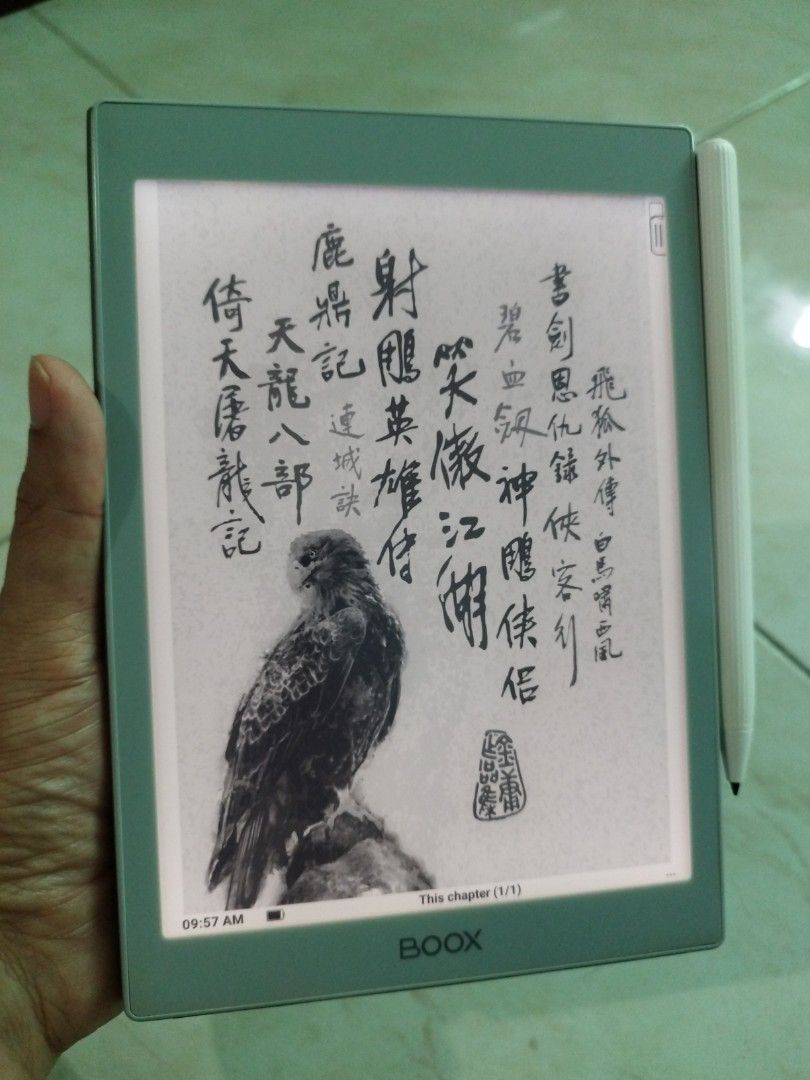 飛狐外傳
白馬嘯西風
書劍恩仇錄
俠客行
碧血劍
神鵰侠侶
笑傲江湖
射鵰英雄傳
鹿鼎記
連城訣
天龍八部
倚天屠龍記
金庸
作品集
This chapter (1/1)
09:57 AM
BOOX